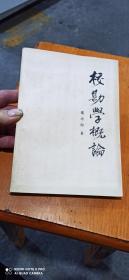 校勘學概論
戴南海 著
REDMI NOTE 9 PRO
AI QUAD CAMERA